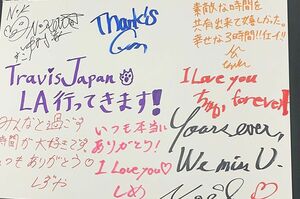 N.K
Thanks
素敵な時間を
共有出来て嬉しかった。
幸せな3時間!!
Travis Japan
LA行ってきます!
I Love you
forever!
みんなと過ごす
時間が大好きです
いつもありがとう♡
しずや
いつも本当に
ありがとう!
I Love you♡
しめ
Yours ever,
We miss U.